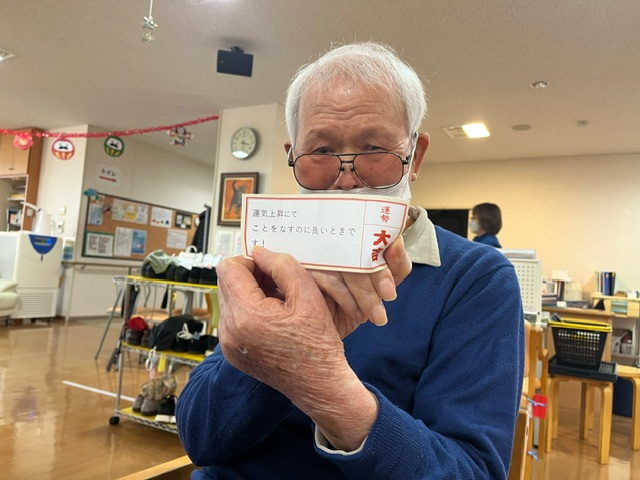 運勢
大吉
運気上昇にて
ことをなすのに良いときで
す!
トイレ